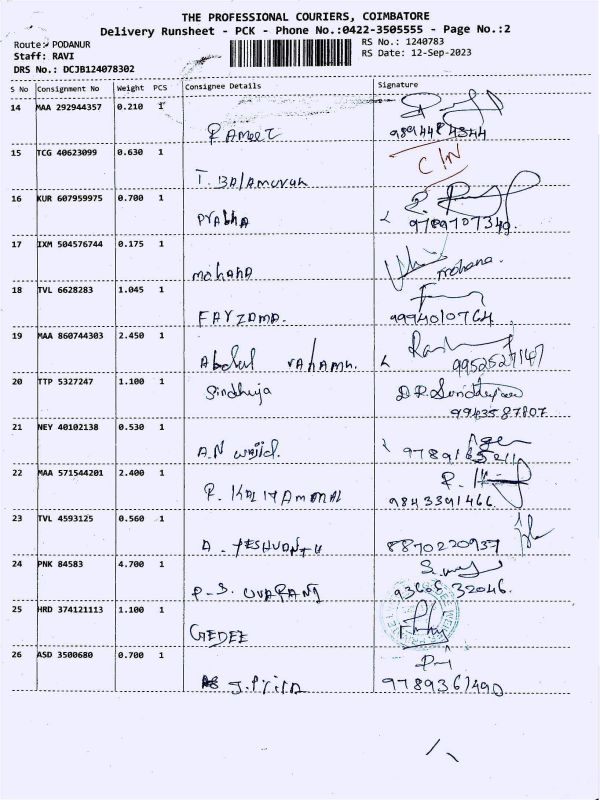 THE PROFESSIONAL COURIERS, COIMBATORE
Delivery Runsheet - PCK - Phone No.:0422-3505555 - Page No.:2
Route: PODANUR
RS No.: 1240783
Staff: RAVI
RS Date: 12-Sep-2023
DRS No.: DCJB124078302
S No Consignment No Weight PCS Consignee Details Signature
14 MAA 292944357 0.210 1
RAMEEZ 9894484344
15 TCG 40623099 0.630 1 C/N
T. Balamurugan
16 KUR 607959975 0.700 1
Prabha 9789707349.
17 IXM 504576744 0.175 1
mohana mohana.
18 TVL 6628283 1.045 1
FAYZAMA. 9994010764
19 MAA 860744303 2.450 1
Abdul rahaman. 9952527147
20 TTP 5327247 1.100 1 Sindhuja
9943587807
21 NEY 40102138 0.530 1
A.N wajid.
22 MAA 571544201 2.400 1
9843391466.
23 TVL 4593125 0.560 1
A. YESHVANTH 8870220937
24 PNK 84583 4.700 1
P.S. UVARANJ 93605 32046.
25 HRD 374121113 1.100 1
GEDEE
26 ASD 3500680 0.700 1
J. Priya 9789361490